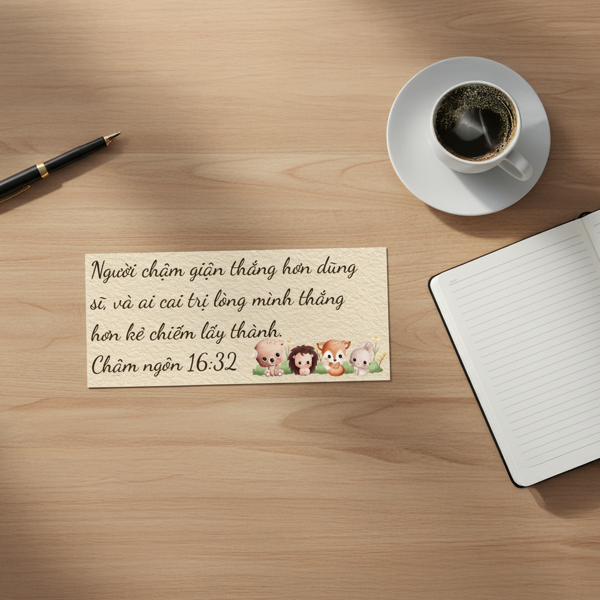 Người chậm giận thắng hơn dũng
sĩ, và ai cai trị lòng mình thắng
hơn kẻ chiếm lấy thành.
Châm ngôn 16:32